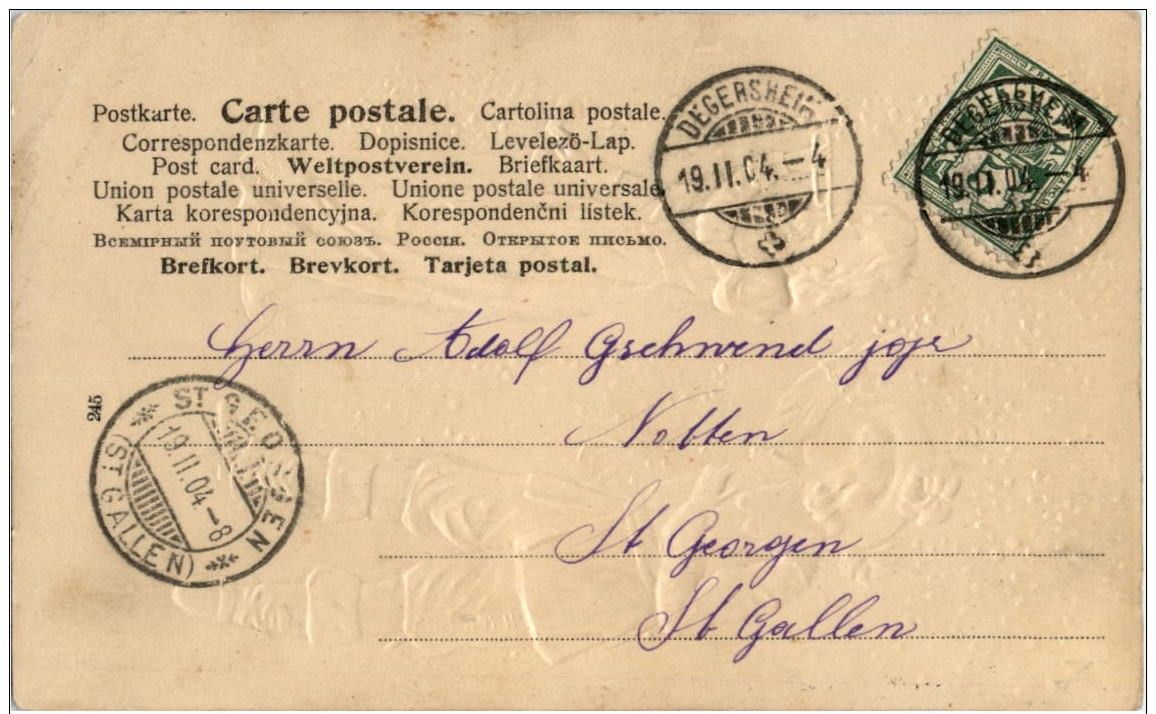 Postkarte. Carte postale. Cartolina postale.
Correspondenzkarte. Dopisnice. Levelezö-Lap.
Post card. Weltpostverein. Briefkaart.
Union postale universelle. Unione postale universale.
Karta korespondencyjna. Korespondenční lístek.
Всемірный поутовый союзъ. Россія. Открытое письмо.
Brefkort. Brevkort. Tarjeta postal.
DEGERSHEIM
19.II.04.–4
DEGERSHEIM
19.II.04.–4
FRANCO
Herrn Adolf Gschwend
Notten
St Georgen
St Gallen
245
ST. GEORGEN
19.II.04–8
(ST. GALLEN)